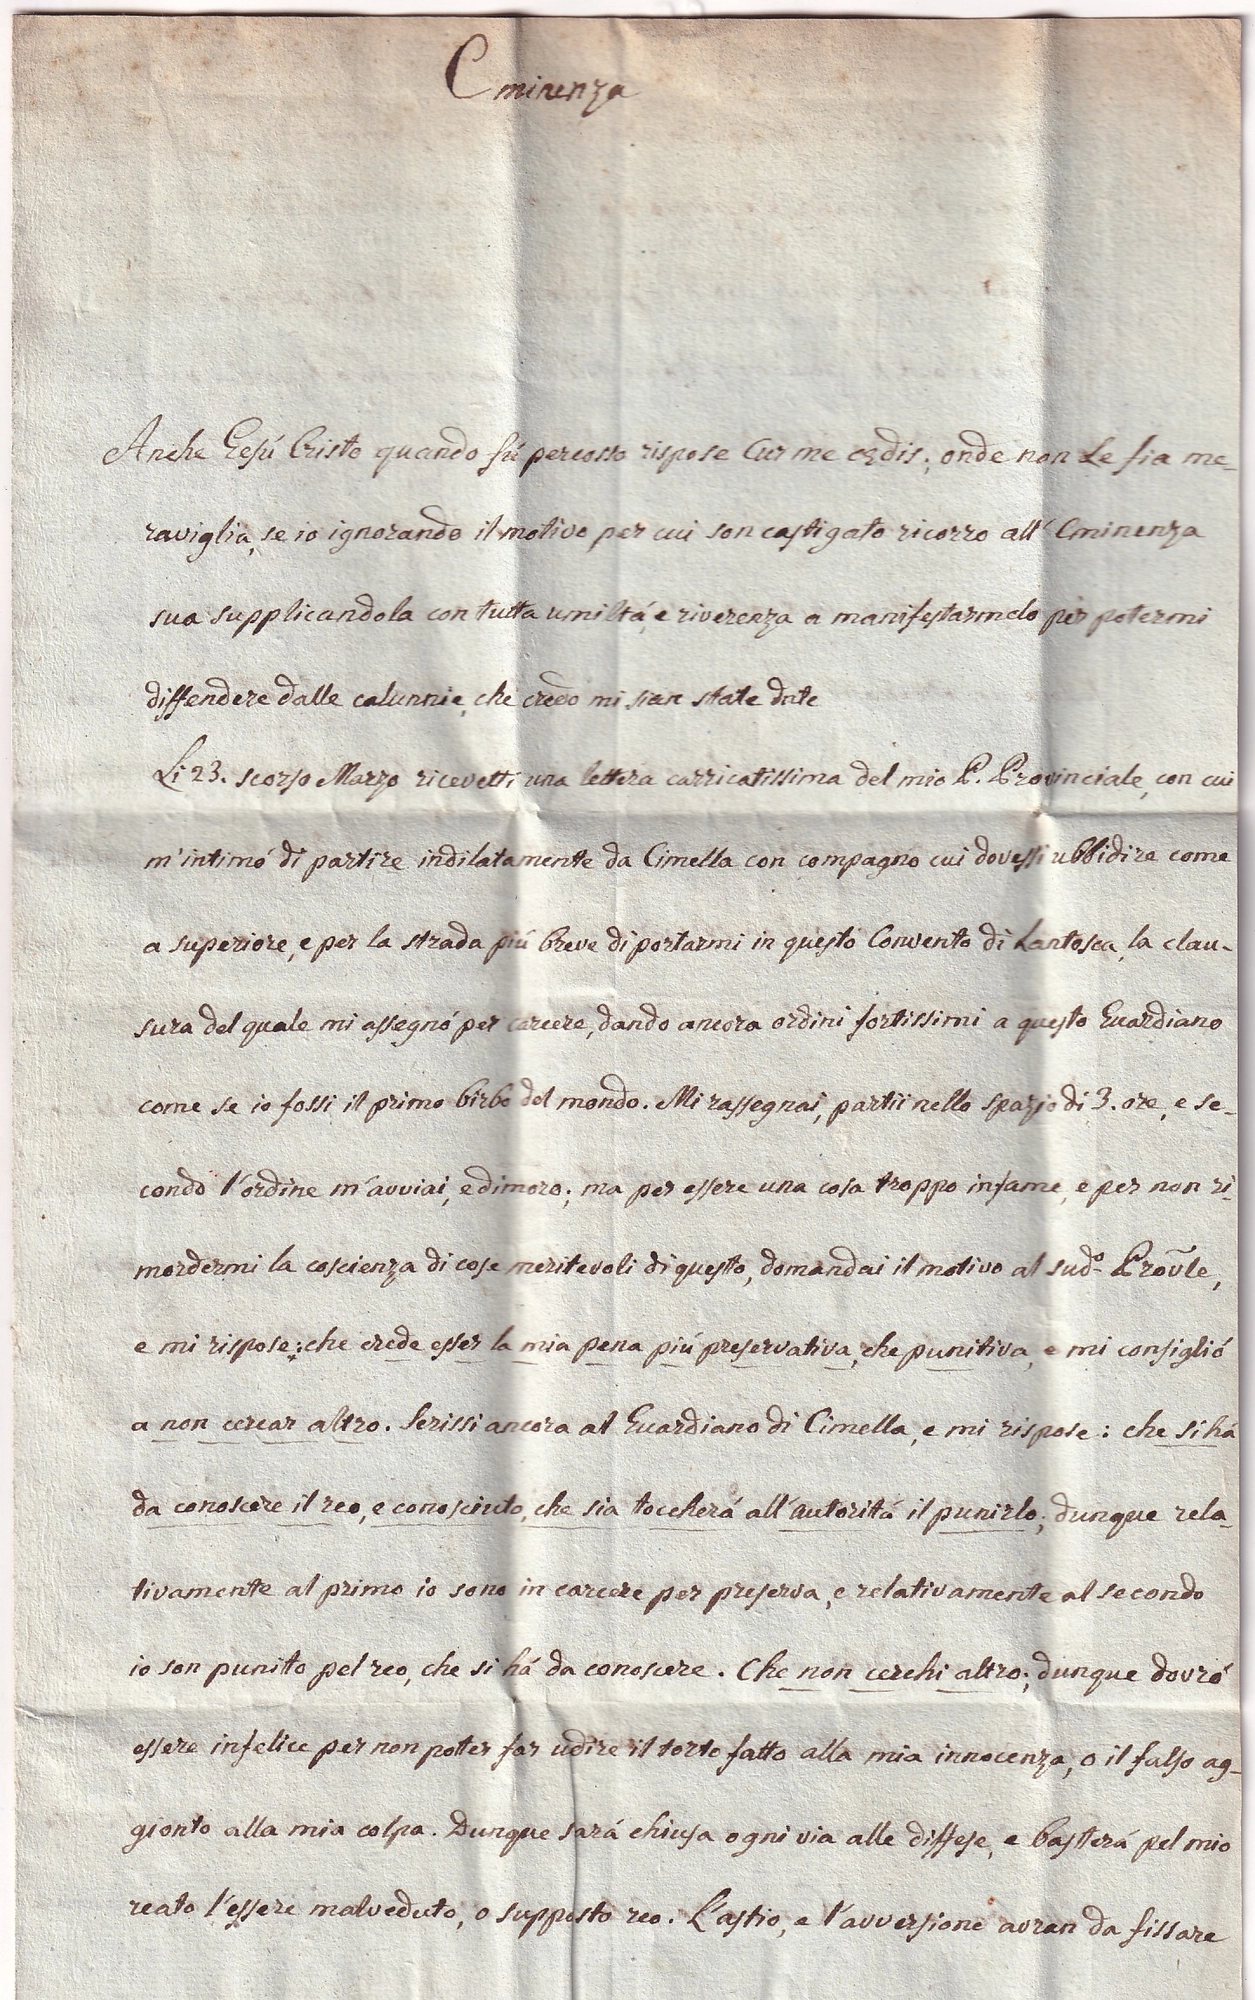 Eminenza
Anche Gesú Cristo quando fú percosso rispose Cur me cędis; onde non Le fia me-
raviglia, se io ignorando il motivo per cui son castigato ricorro all' Eminenza
sua supplicandola con tutta umiltá, e riverenza a manifestarmelo per potermi
diffendere dalle calunnie, che credo mi sian state date
Li 23. scorso Marzo ricevetti una lettera carricatissima del mio P. Provinciale, con cui
m'intimó di partire indilatamente da Cimella con compagno cui dovessi ubbidire come
a superiore, e per la strada piú breve di portarmi in questo Convento di Lantosca, la clau-
sura del quale mi assegnó per carcere, dando ancora ordini fortissimi a questo Guardiano
come se io fossi il primo birbo del mondo. Mi rassegnai, partii nello spazio di 3. ore, e se-
condo l'ordine m'avviai, e dimoro; ma per essere una cosa troppo infame, e per non ri-
mordermi la coscienza di cose meritevoli di questo, domandai il motivo al sud.º Provle,
e mi rispose: che crede esser la mia pena piú preservativa, che punitiva, e mi consiglió
a non cercar altro. Scrissi ancora al Guardiano di Cimella, e mi rispose: che si há
da conoscere il reo, e conosciuto, che sia toccherá all'autoritá il punirlo; dunque rela-
tivamente al primo io sono in carcere per preserva, e relativamente al secondo
io son punito pel reo, che si há da conoscere. Che non cerchi altro; dunque dovró
essere infelice per non potter far udire il torto fatto alla mia innocenza, o il falso ag-
gionto alla mia colpa. Dunque sará chiusa ogni via alle diffese, e basterá pel mio
reato l'essere malveduto, o supposto reo. L'astio, e l'avversione avran da fissare